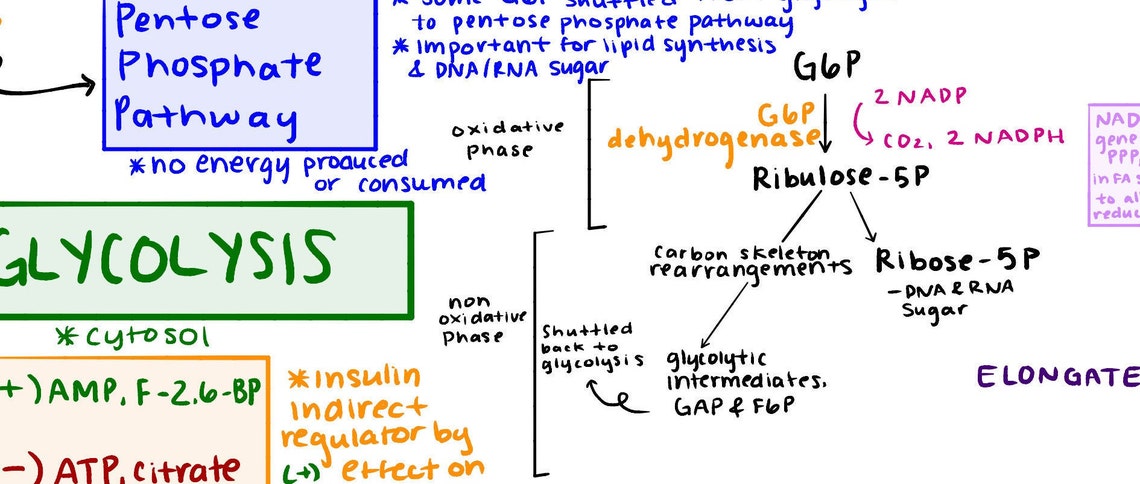 Pentose
Phosphate
Pathway
*no energy produced
or consumed
to pentose phosphate pathway
* Important for lipid synthesis
& DNA/RNA sugar
GLYCOLYSIS
* cytosol
+) AMP, F-2,6-BP
-) ATP, citrate
*insulin
indirect
regulator by
(+) effect on
oxidative
phase
G6P
G6P
dehydrogenase
2 NADP
CO2, 2 NADPH
Ribulose-5P
non
oxidative
phase
carbon skeleton
rearrangements
Ribose-5P
-DNA & RNA
sugar
shuttled
back to
glycolysis
glycolytic
intermediates,
GAP & F6P
NAD
gene
PPP,
in FA s
to al
reduc
ELONGATE